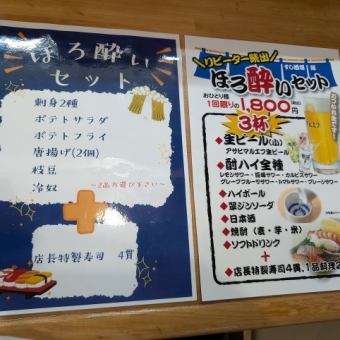 ほろ酔い
セット
刺身2種
ポテトサラダ
ポテトフライ
唐揚げ(2個)
枝豆
冷奴
～2品お選び下さい～
+
店長特製寿司 4貫
\リピーター続出/
すし酒場
ほろ酔いセット
おひとり様
1回限りの1,800円
3杯
◆生ビール(小)
アサヒマルエフ生ビール
◆酎ハイ全種
レモンサワー・巨峰サワー・カルピスサワー
グレープフルーツサワー・トマトサワー・プレーンサワー
◆ハイボール
◆翠ジンソーダ
◆日本酒
◆焼酎(麦・芋・米)
◆ソフトドリンク
+
◆店長特製寿司4貫、1品料理2